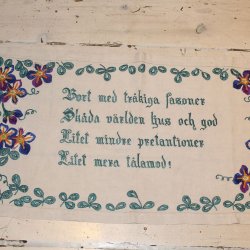 Bort med tråkiga fasoner
Skåda världen ljus och god
Litet mindre pretantioner
Litet mera tålamod!